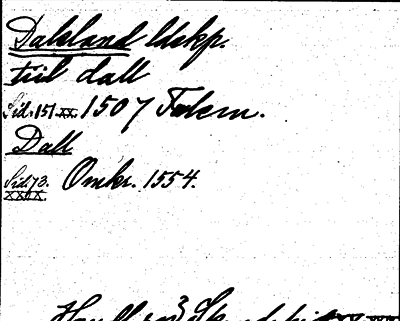 Dalsland ldskp.
till dall
Sid. 151. XX. 1507 Falem.
Dall
Sid. 73. Omkr. 1554.
XXIX.